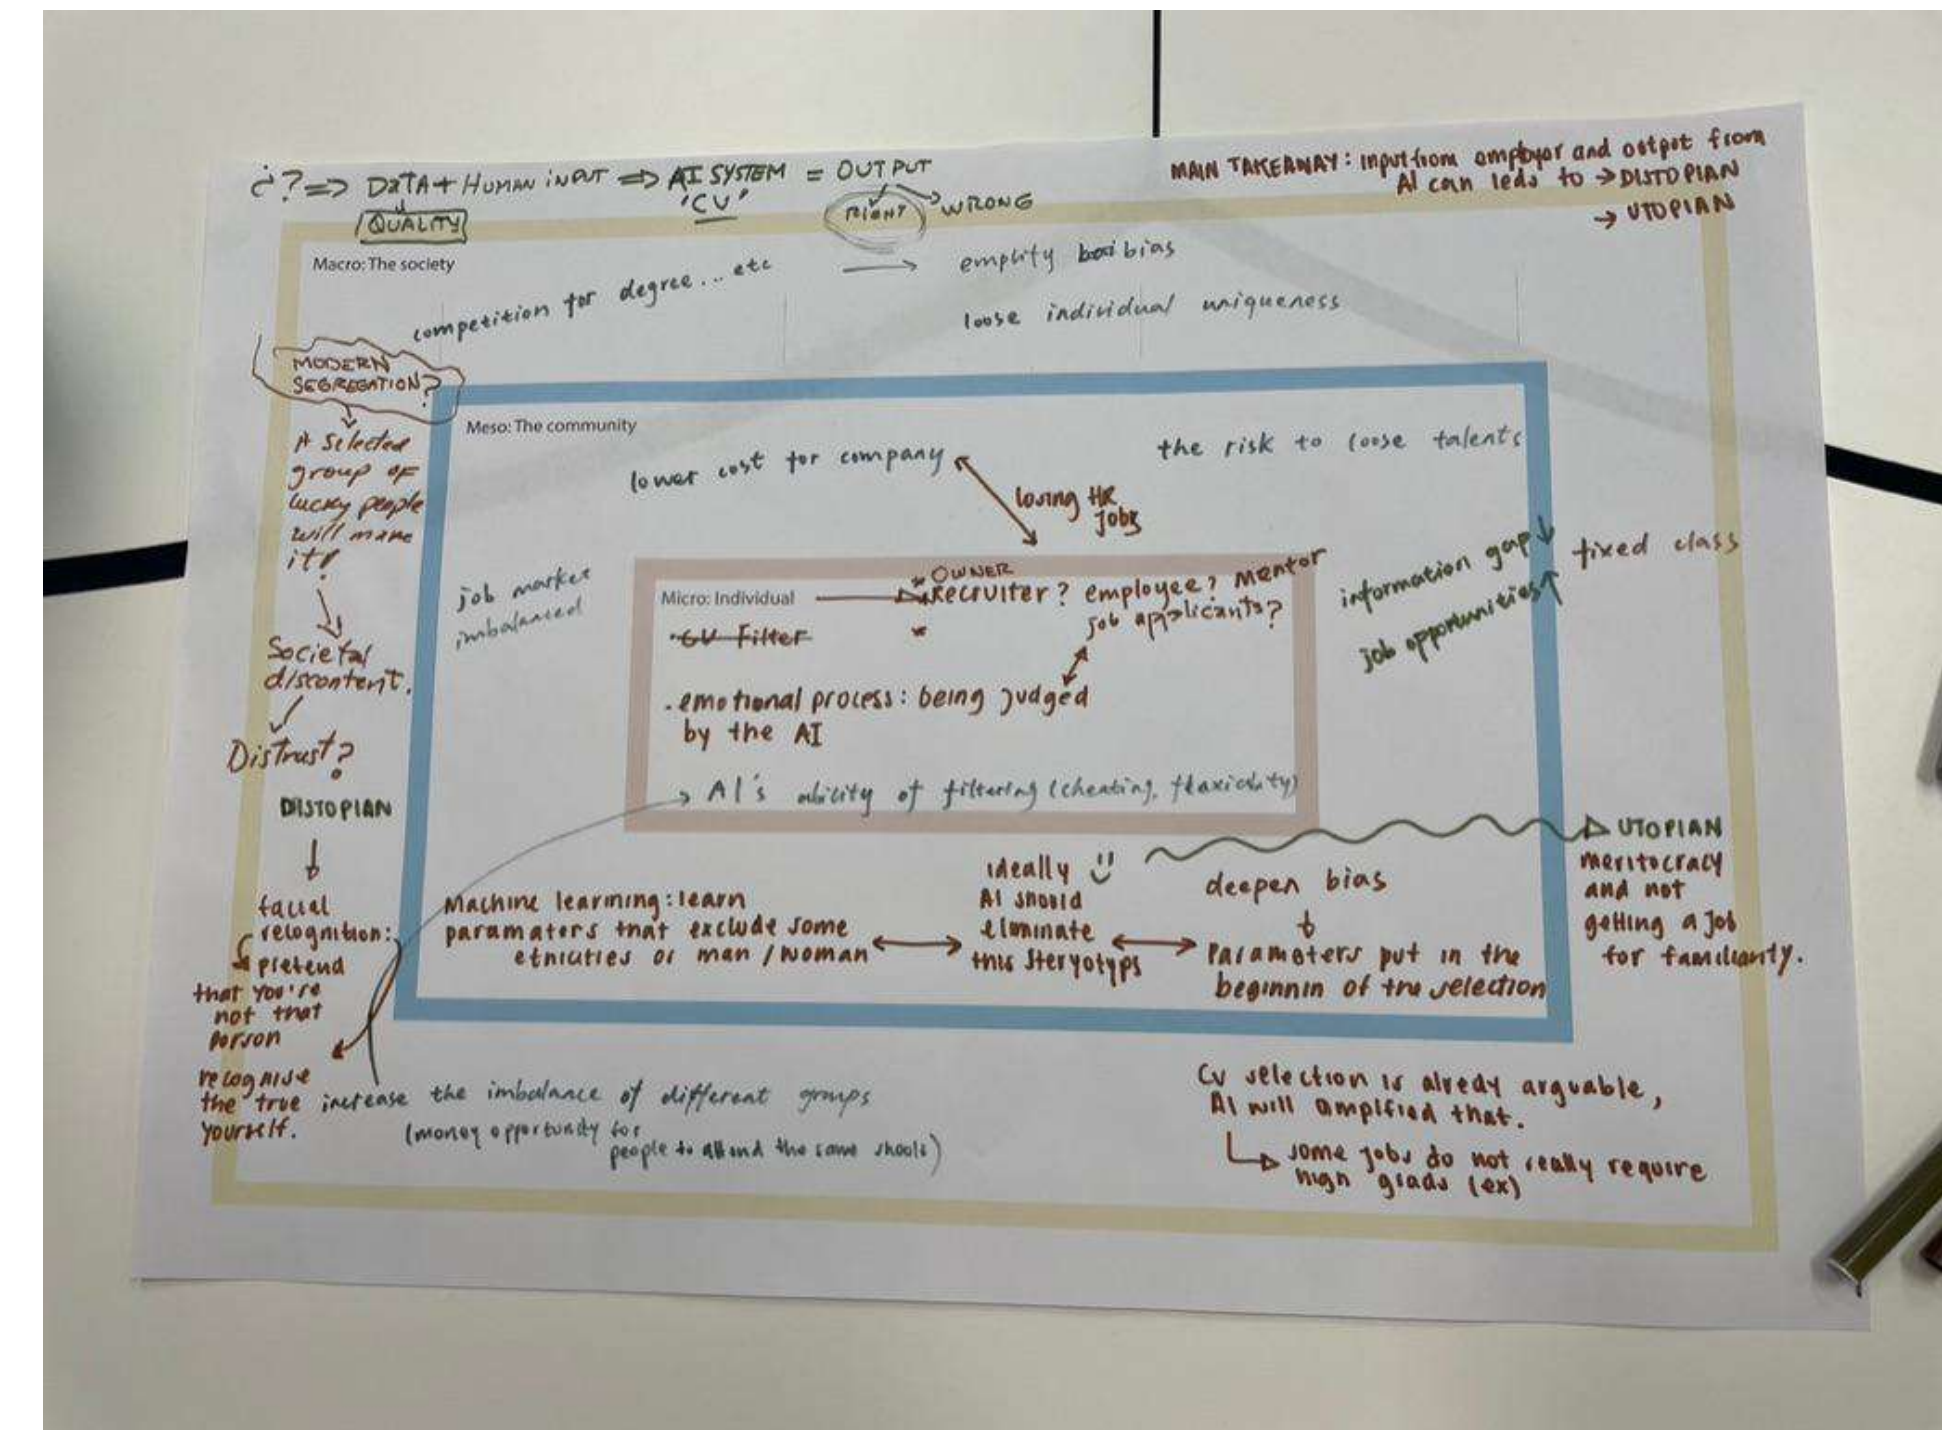 ¿?⇒ DATA + HUMAN INPUT ⇒ AI SYSTEM = OUTPUT
QUALITY
'CV'
RIGHT
WRONG
MAIN TAKEAWAY: input from employor and output from
AI can leds to → DISTOPIAN
→ UTOPIAN
Macro: The society
competition for degree... etc → emplify bias
loose individual uniqueness
MODERN
SEGREGATION?
A selected
group of
lucky people
will make
it!
Societal
discontent.
Distrust?
DISTOPIAN
facial
recognition:
pretend
that you're
not that
person
recognise
the true
yourself.
Meso: The community
lower cost for company
losing HR
jobs
the risk to loose talents
job market
imbalanced
information gap ↓
job opportunities ↑
fixed class
Micro: Individual
* OWNER
Recruiter? employee? mentor
job applicants?
*
· CV Filter
· emotional process: being judged
by the AI
→ AI's ability of filtering (cheating, flaxiclity)
Machine learning: learn
paramaters that exclude some
etnicities or man/woman
ideally
AI should
eliminate
this steryotyps
deepen bias
Parameters put in the
beginnin of the selection
UTOPIAN
meritocracy
and not
getting a job
for familiarity.
increase the imbalance of different groups
(money opportunity for
people to attend the same shools)
CV selection is alredy arguable,
AI will amplfied that.
some jobs do not really require
high grads (ex)